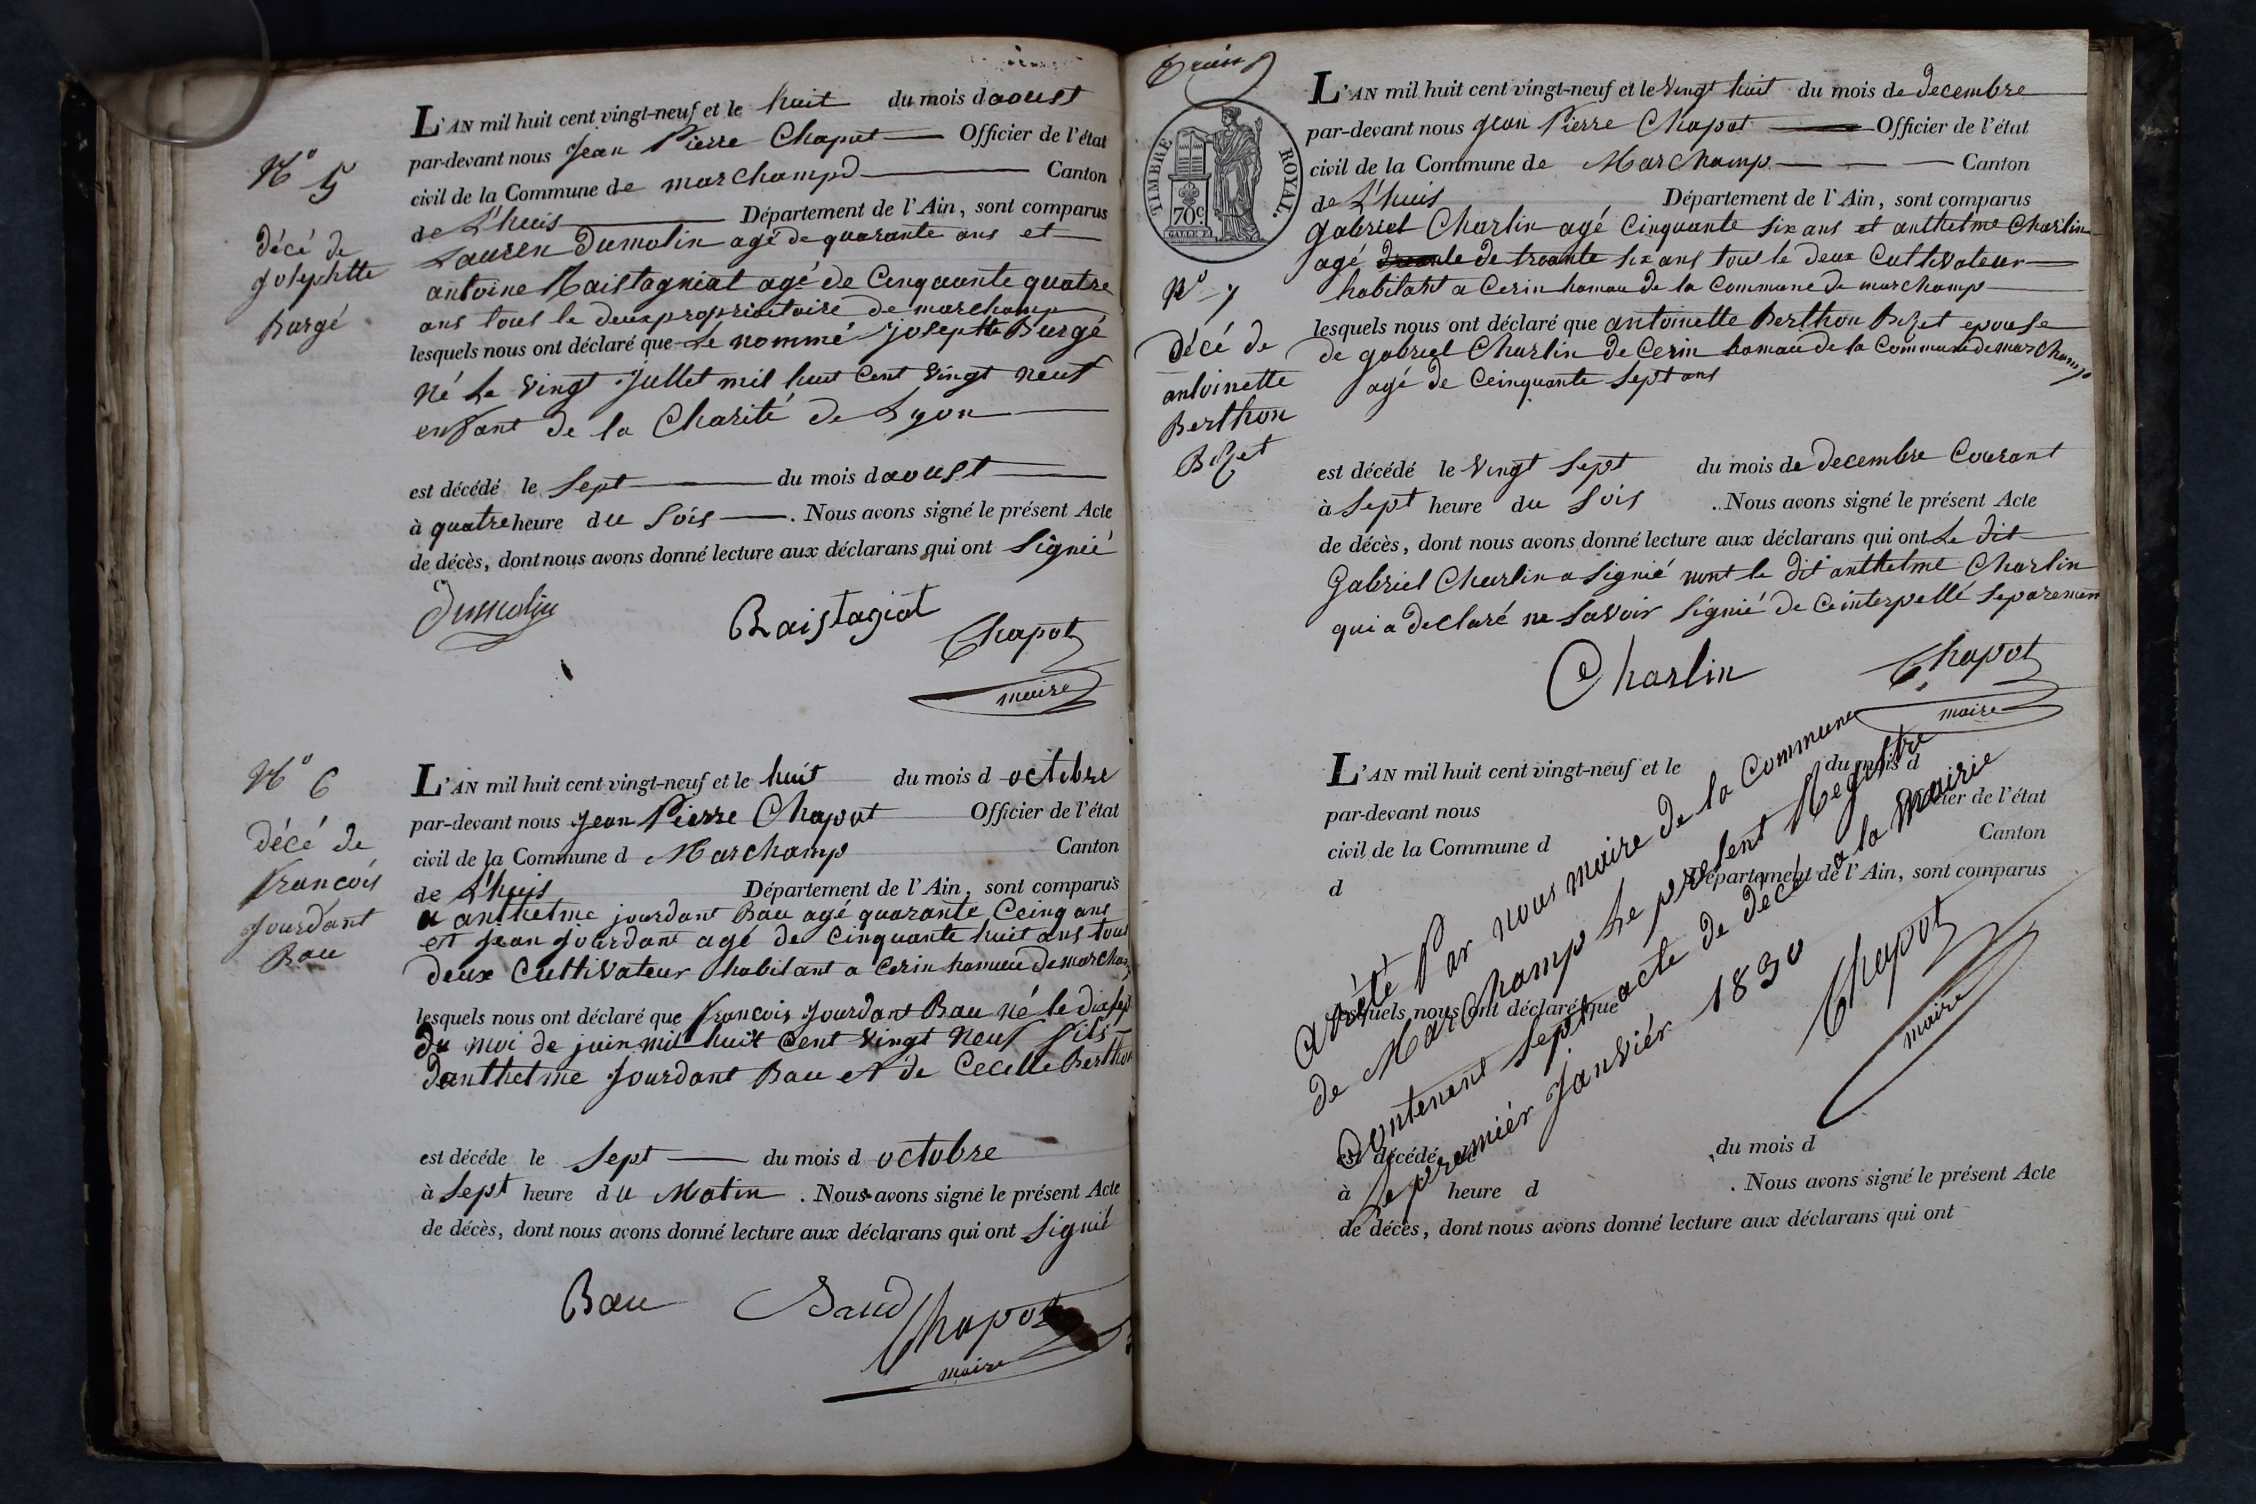 N° 5
décé de
josephtte
Burgé
L'AN mil huit cent vingt-neuf et le huit du mois d aoust
par-devant nous jean Pierre Chapot Officier de l'état
civil de la Commune de marchamp Canton
de L'huis Département de l'Ain, sont comparus
Lauren Dumolin agé de quarante ans et
antoine Raistagniat agé de Cinquante quatre
ans tous le deux proprietaire de marchamp
lesquels nous ont déclaré que Le nommé josephtte Burgé
né Le vingt Jullet mil huit cent vingt neuf
enfant de la Charité de Lyon
est décédé le Sept du mois d aoust
à quatre heure du Soir . Nous avons signé le présent Acte
de décès, dont nous avons donné lecture aux déclarans qui ont Signié
Dumolin Raistagiat Chapot
maire
N° 6
Décé de
françois
Jourdant
Bau
L'AN mil huit cent vingt-neuf et le huit du mois d octobre
par-devant nous jean Pierre Chapot Officier de l'état
civil de la Commune d Marchamp Canton
de L'huis Département de l'Ain, sont comparus
anthelme jourdant Bau agé quarante Ceinq ans
et jean jourdant agé de Cinquante huit ans tous
deux Cultivateur habitant a Cerin hamau de marchamp
lesquels nous ont déclaré que françois Jourdant Bau né le dix sept
du moi de juin mil huit cent vingt neuf fils
danthelme Jourdant Bau et de Cecelle Berthon
est décédé le Sept du mois d octobre
à Sept heure du Matin . Nous avons signé le présent Acte
de décès, dont nous avons donné lecture aux déclarans qui ont Signié
Bau Baud Chapot
maire
TIMBRE ROYAL
70c
N° 7
Décé de
antoinette
Berthon
Bizet
L'AN mil huit cent vingt-neuf et le Vingt huit du mois de decembre
par-devant nous jean Pierre Chapot Officier de l'état
civil de la Commune de Marchamp Canton
de L'huis Département de l'Ain, sont comparus
gabriel Charlin agé Cinquante six ans et anthelme Charlin
agé de treante six ans tous le deux Cultivateur
habitant a Cerin hamau de la Commune de marchamp
lesquels nous ont déclaré que antoinette Berthon Bizet epouse
de gabriel Charlin de Cerin hamau de la Commune de marchamp
agé de Ceinquante Sept ans
est décédé le Vingt Sept du mois de decembre Courant
à Sept heure du Soir . Nous avons signé le présent Acte
de décès, dont nous avons donné lecture aux déclarans qui ont Le dit
Gabriel Charlin a Signié nont le dit anthelme Charlin
qui a declaré ne Savoir Signié de ce interpellé Separemen
Charlin Chapot
maire
L'AN mil huit cent vingt-neuf et le du mois d
par-devant nous Officier de l'état
civil de la Commune d Canton
d Département de l'Ain, sont comparus
lesquels nous ont déclaré que
est décédé le du mois d
à heure d . Nous avons signé le présent Acte
de décès, dont nous avons donné lecture aux déclarans qui ont
arrêté Par nous maire de la Commune
de Marchamp Le present Registre
Contenent Sept acte de décé a la Mairie
Le premiér Janviér 1830
Chapot
maire